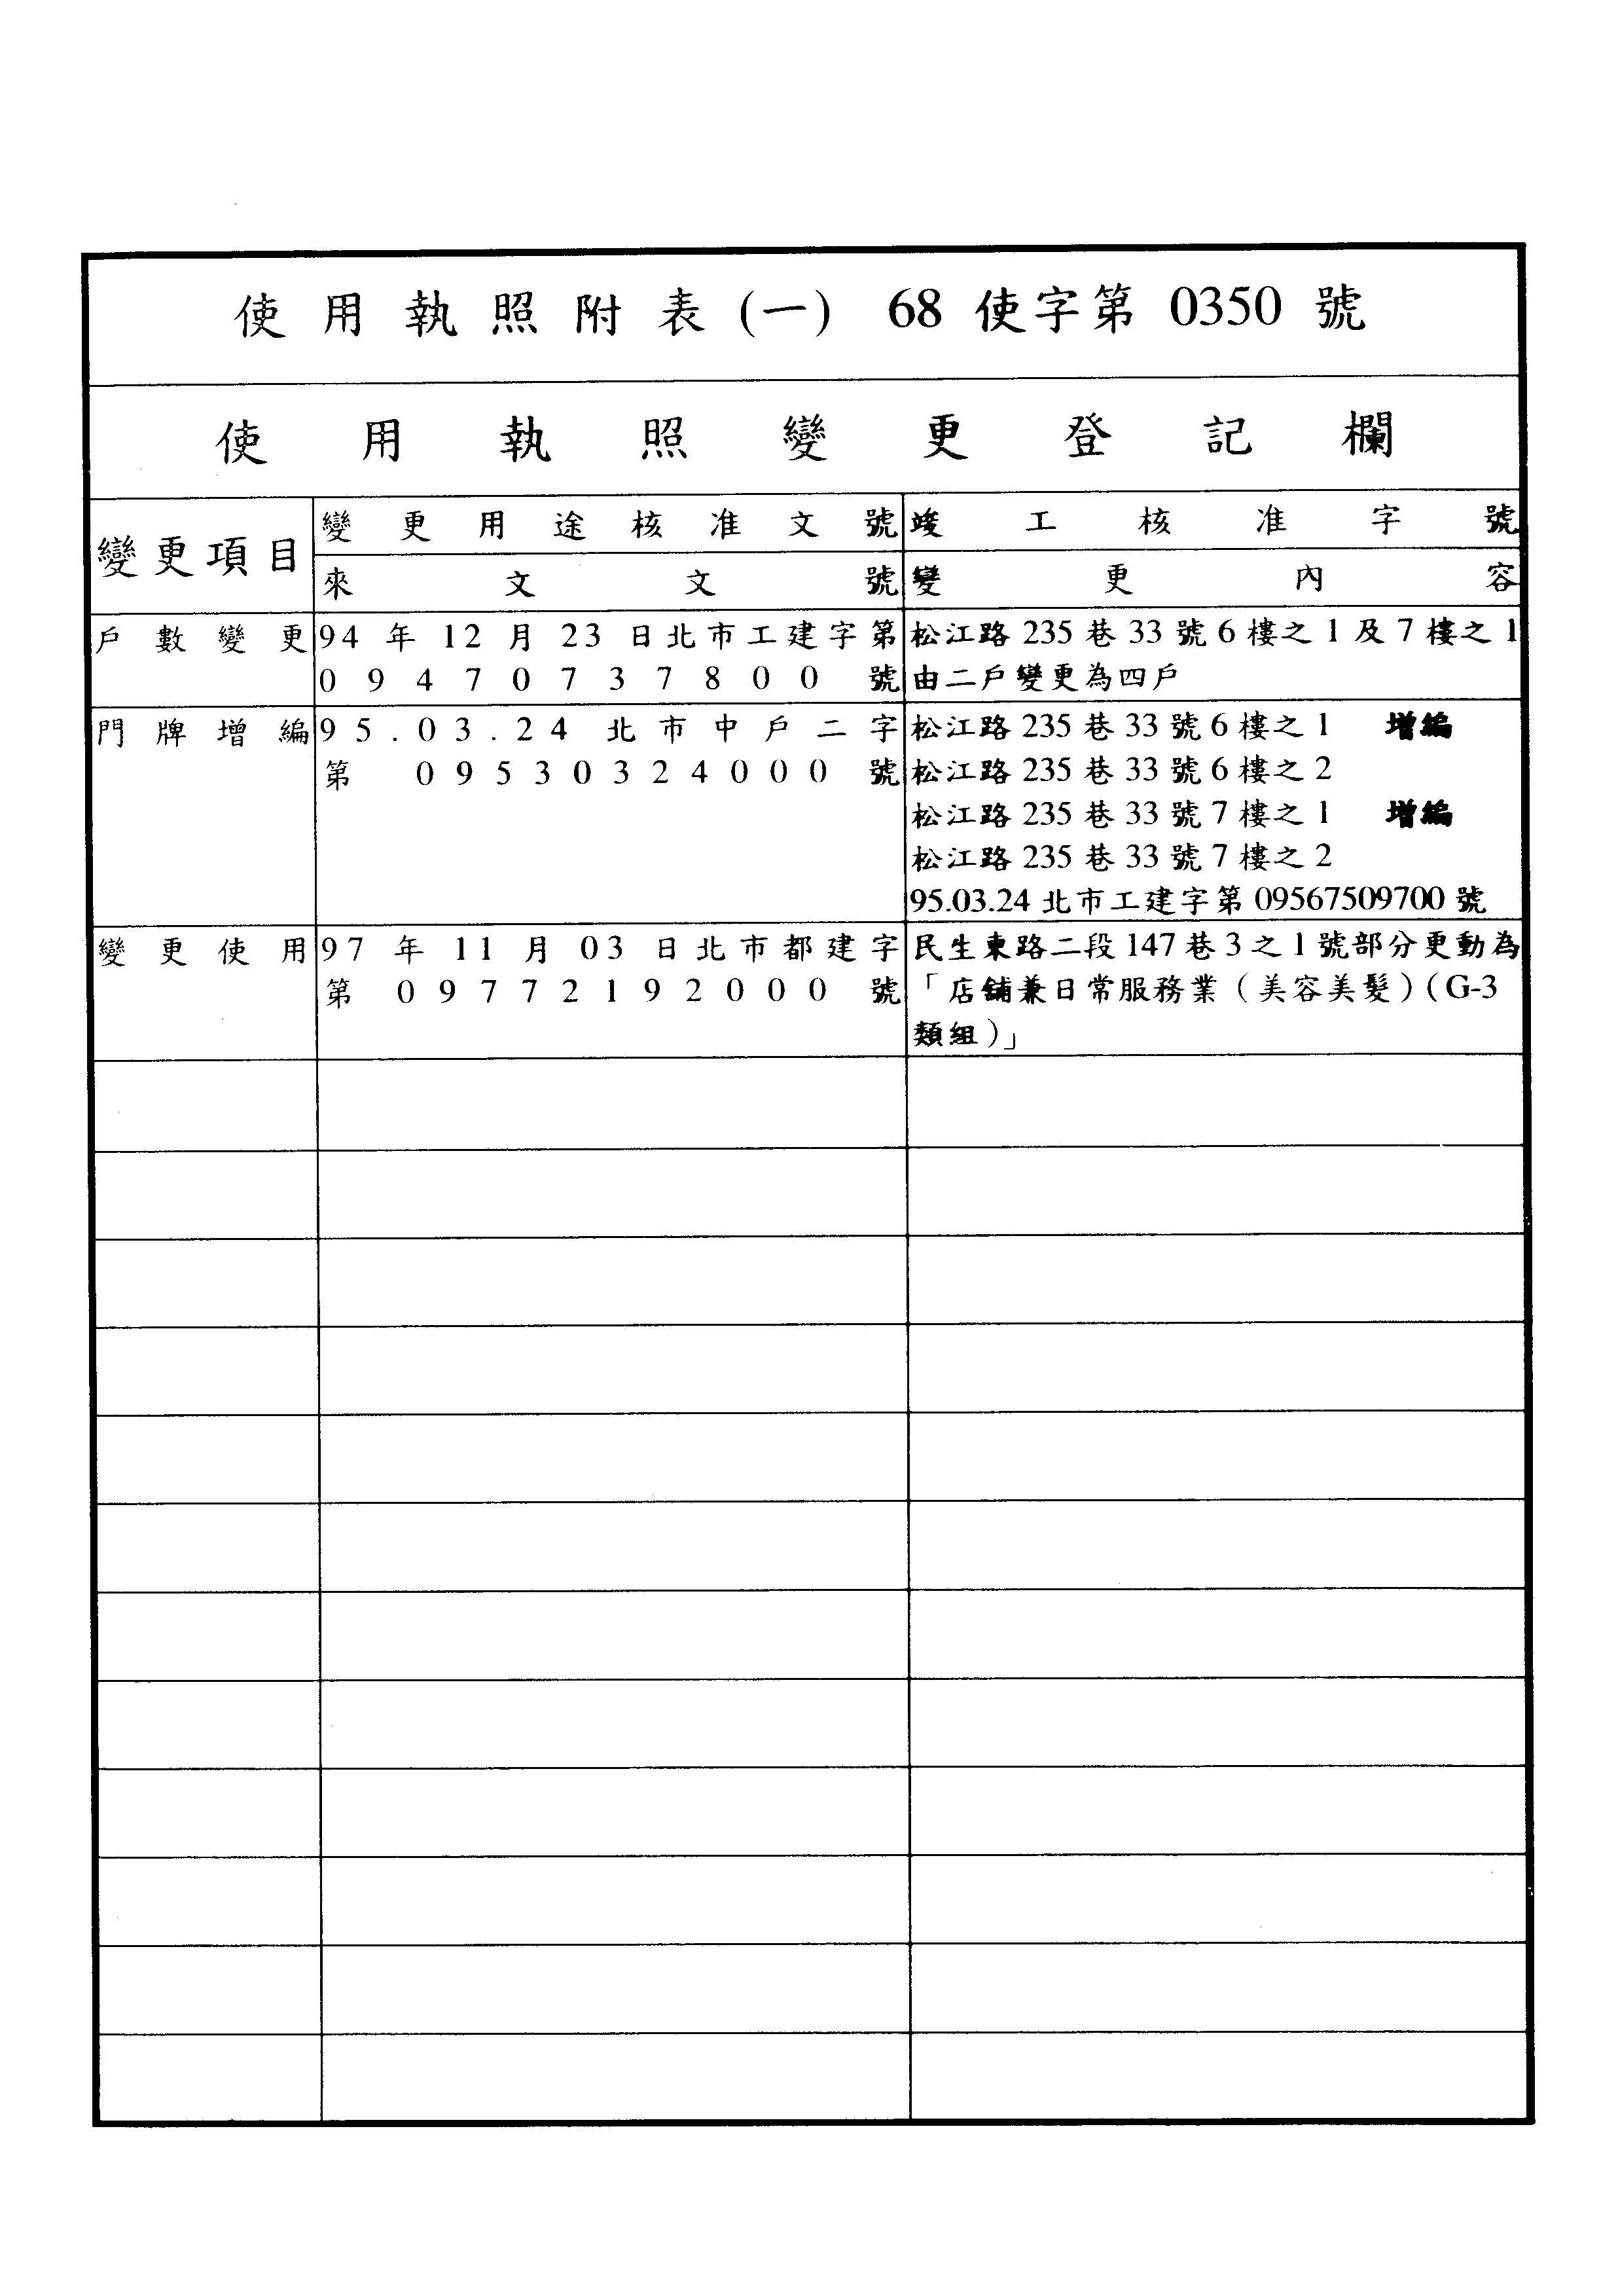 使用執照附表(一) 68 使字第 0350 號
使用執照變更登記欄
變更項目
變更用途核准文號
竣工核准字號
來文文號
變更內容
戶數變更
94 年 12 月 23 日北市工建字第
09470737800 號
松江路 235 巷 33 號 6 樓之 1 及 7 樓之 1
由二戶變更為四戶
門牌增編
95.03.24 北市中戶二字
第 09530324000 號
松江路 235 巷 33 號 6 樓之 1 增編
松江路 235 巷 33 號 6 樓之 2
松江路 235 巷 33 號 7 樓之 1 增編
松江路 235 巷 33 號 7 樓之 2
95.03.24 北市工建字第 09567509700 號
變更使用
97 年 11 月 03 日北市都建字
第 09772192000 號
民生東路二段 147 巷 3 之 1 號部分更動為
「店舖兼日常服務業（美容美髮）(G-3
類組)」